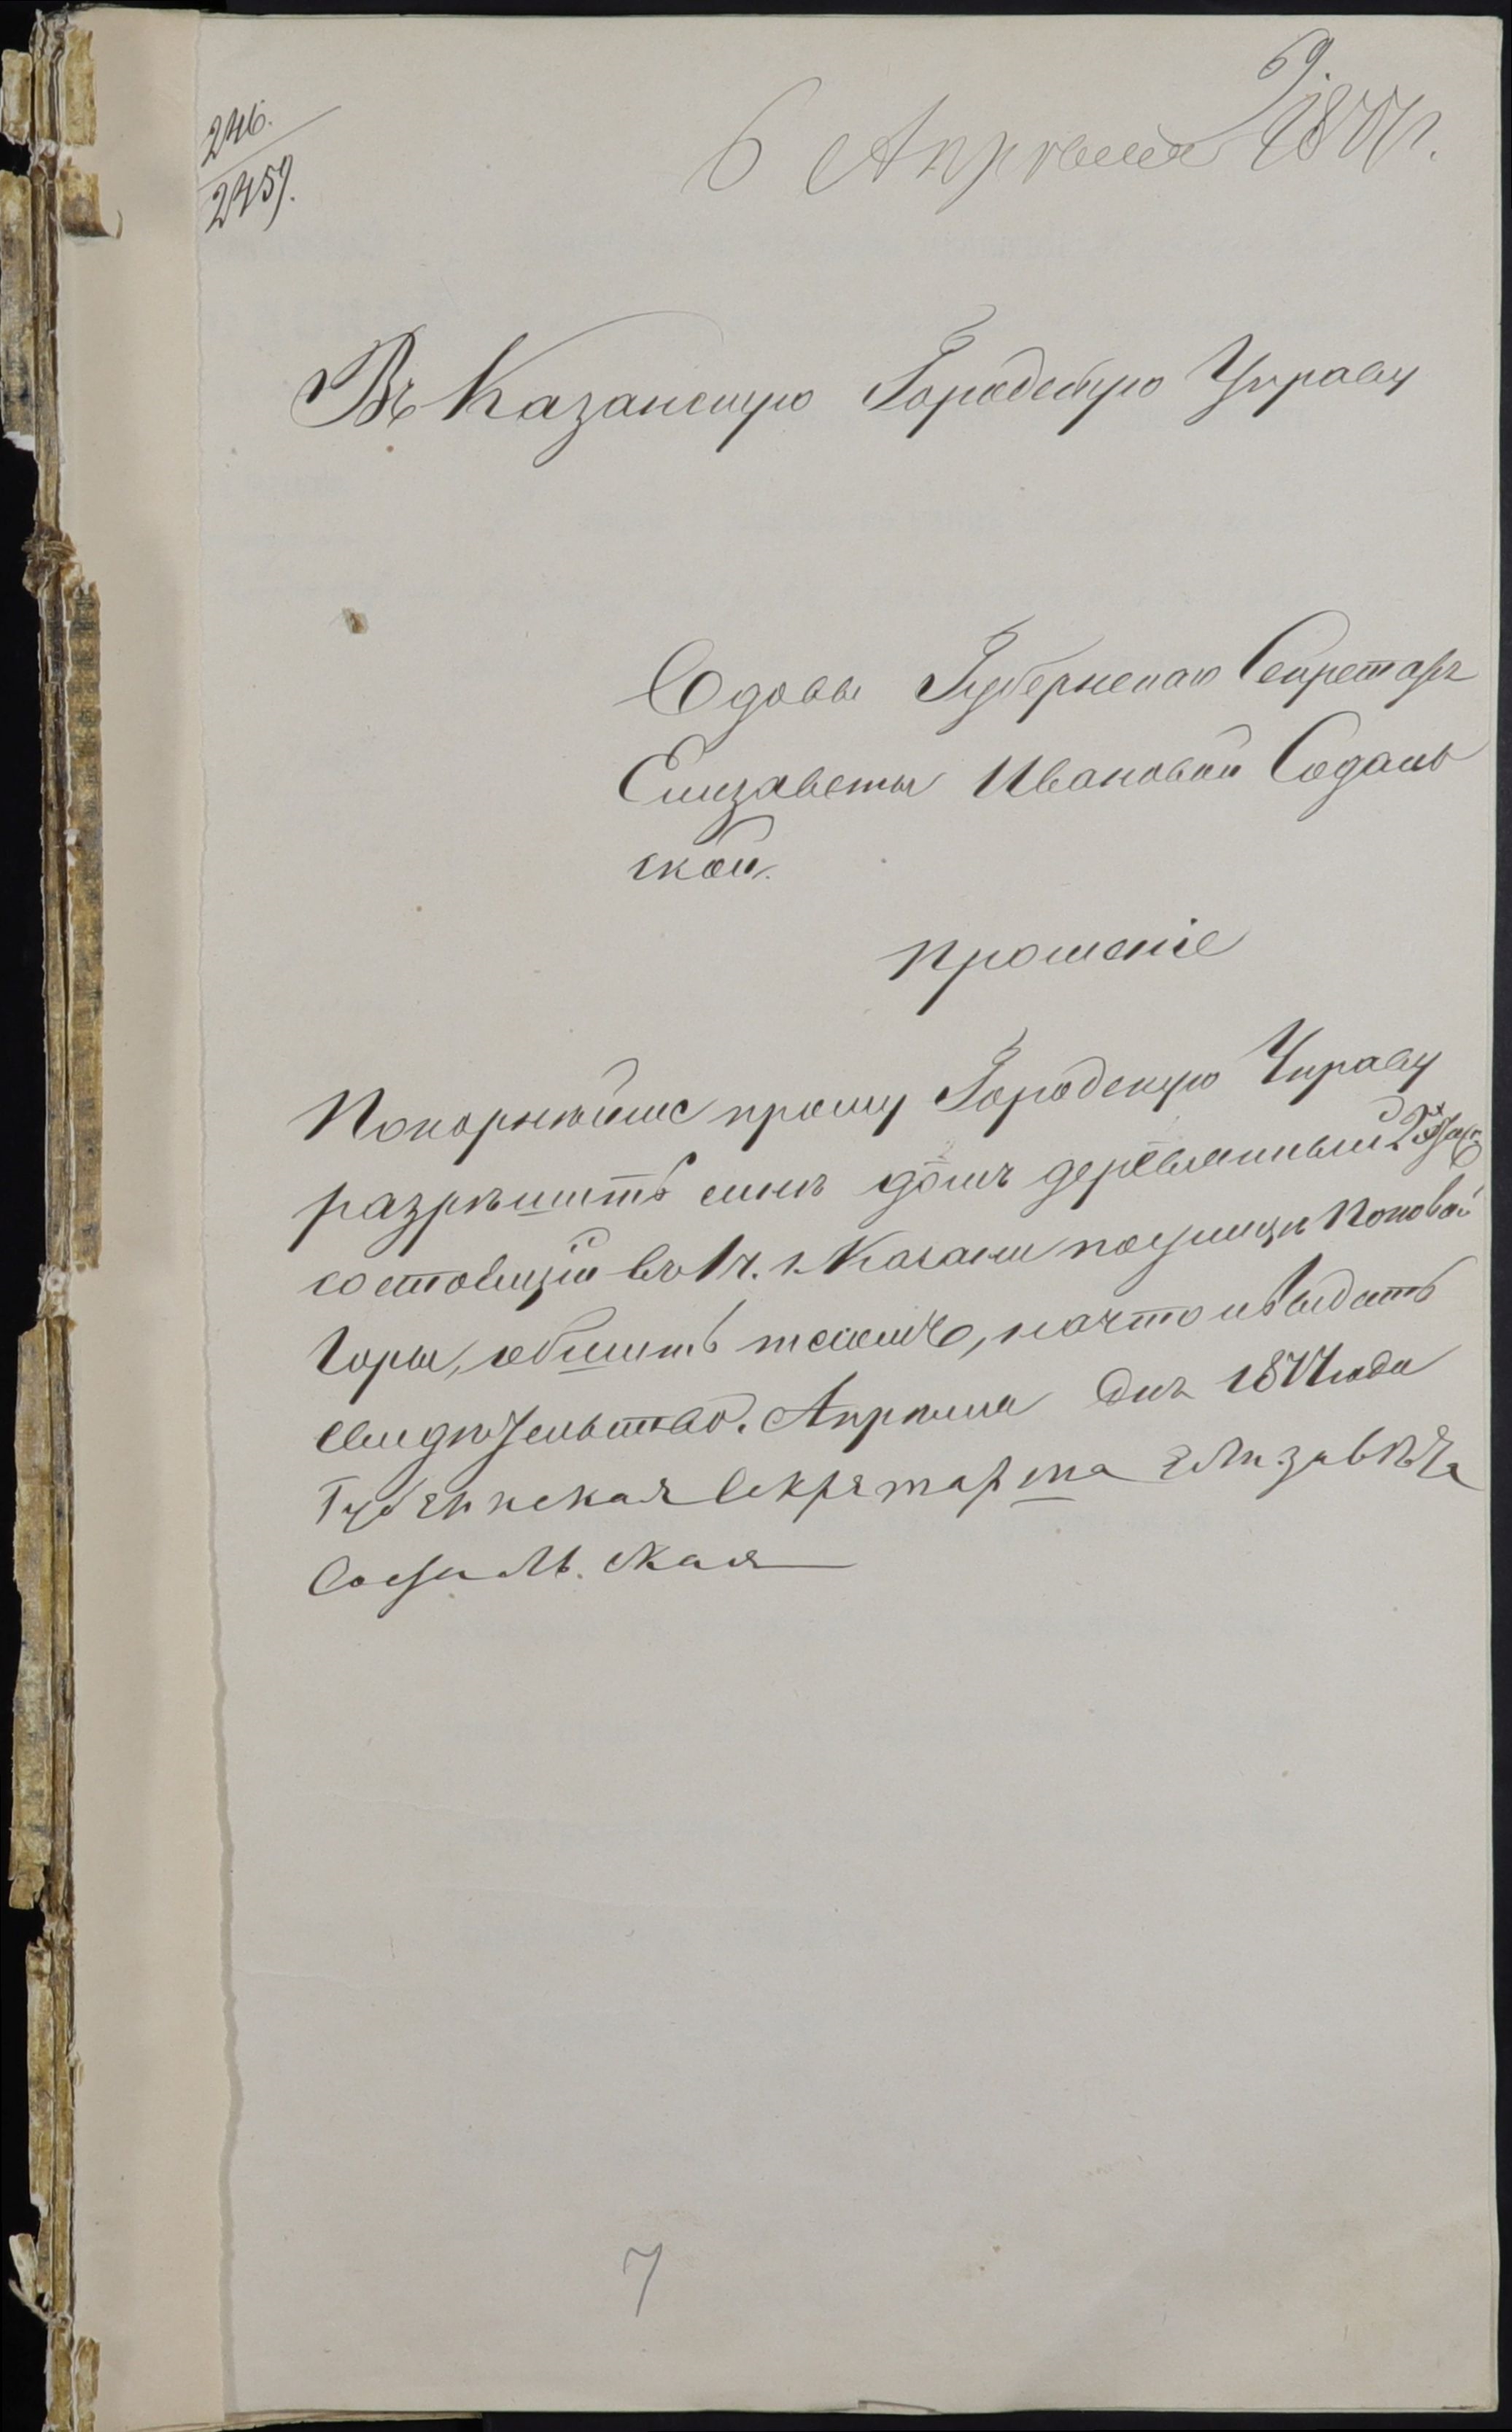 69.
246.
2457.
6 Апрѣля 1877 г.
Въ Казанскую Городскую Управу
Вдовы Губернскаго Секретаря
Елизаветы Ивановой Содаль
ской.
Прошеніе
Покорнѣйше прошу Городскую Управу
разрѣшить домъ деревянный
состоящій въ 1 ч. г. Казани по улицѣ Поповой
Горы, обшить тесомъ, на что и выдать
свидѣтельство. Апрѣля дня 1877 года
Губернская Секретарша Елизавѣта
Содальская
7